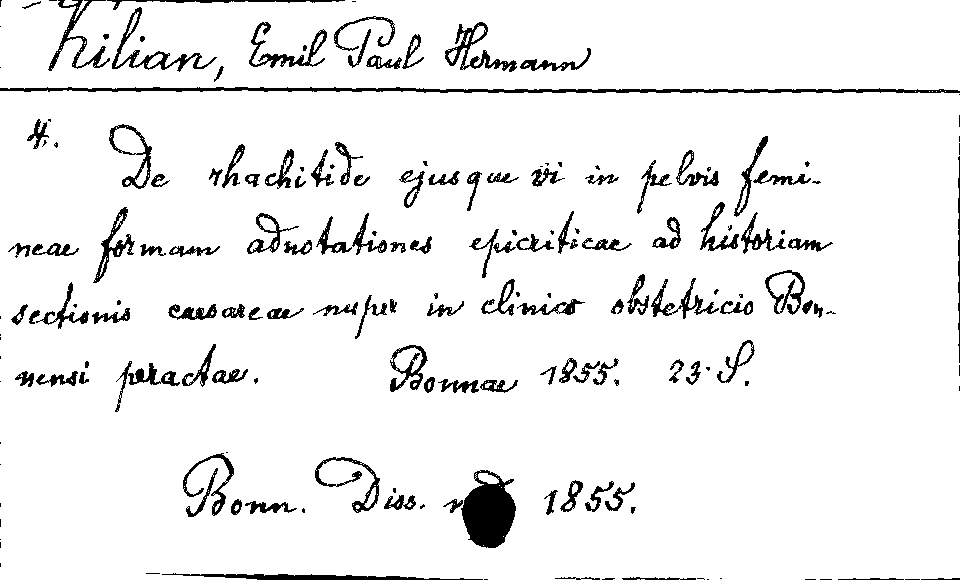 Kilian, Emil Paul Hermann
4.
De rhachitide ejusque vi in pelvis femi-
neae formam adnotationes epicriticae ad historiam
sectionis caesareae nuper in clinico obstetricio Bon-
nensi peractae. Bonnae 1855. 23. S.
Bonn. Diss. 1855.